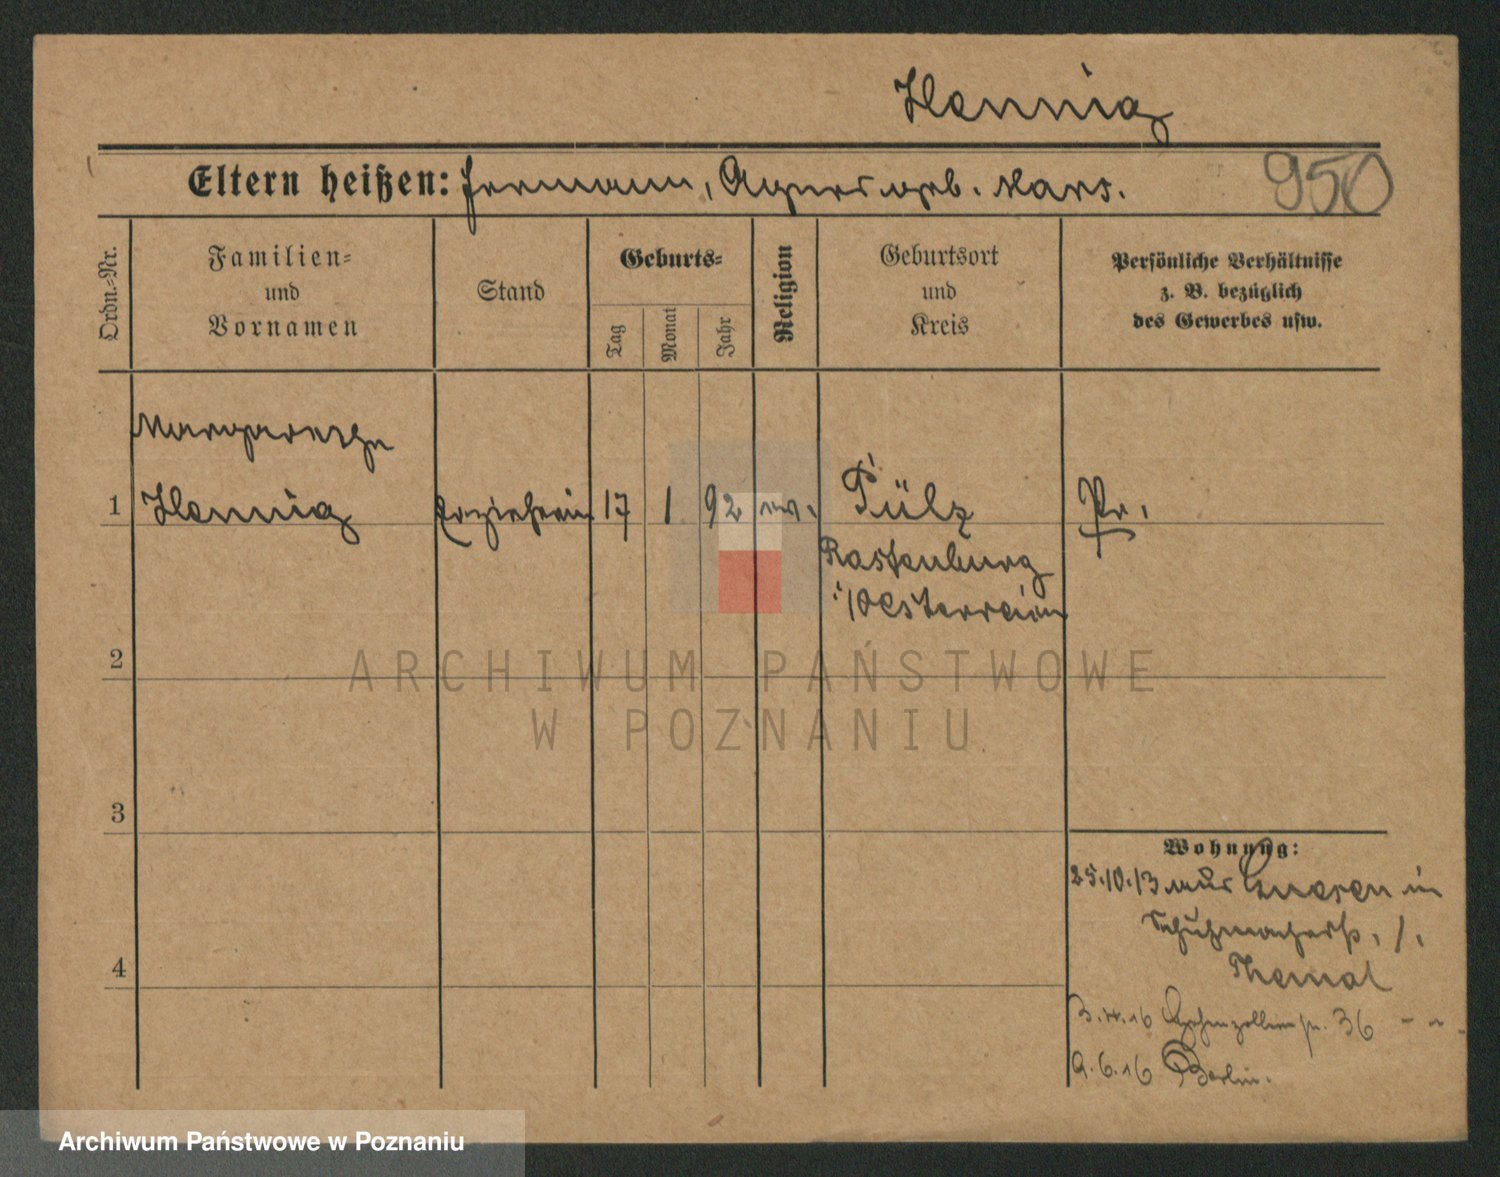 Hennig
Eltern heißen: Hermann, Agnes geb. Mars.
950
Ordn.-Nr.
Familien-
und
Vornamen
Stand
Geburts-
Tag
Monat
Jahr
Religion
Geburtsort
und
Kreis
Persönliche Verhältnisse
z. B. bezüglich
des Gewerbes usw.
Margarethe
1 Hennig Erzieherin 17 1 92 ev. Pülz Pr.
Rastenburg
i/Oesterreich
2
3
4
Wohnung:
25.10.13 aus Gnesen in
Schuhmacherstr. 1.
Themal
3.4.16 Hohenzollernstr. 36
9.6.16 Berlin.
ARCHIWUM PAŃSTWOWE
W POZNANIU
Archiwum Państwowe w Poznaniu